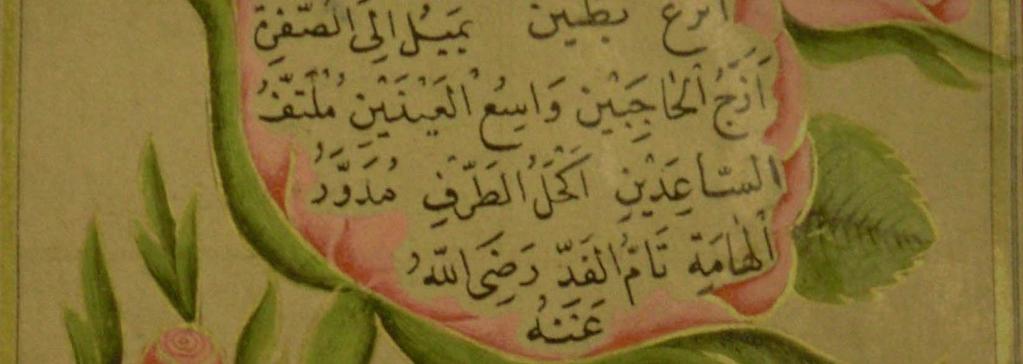 انزع بطين يميل الى الصفرة
ازج الحاجبين واسع العينين ملتف
الساعدين اكحل الطرف مدور
الهامة تام القد رضى الله
عنه